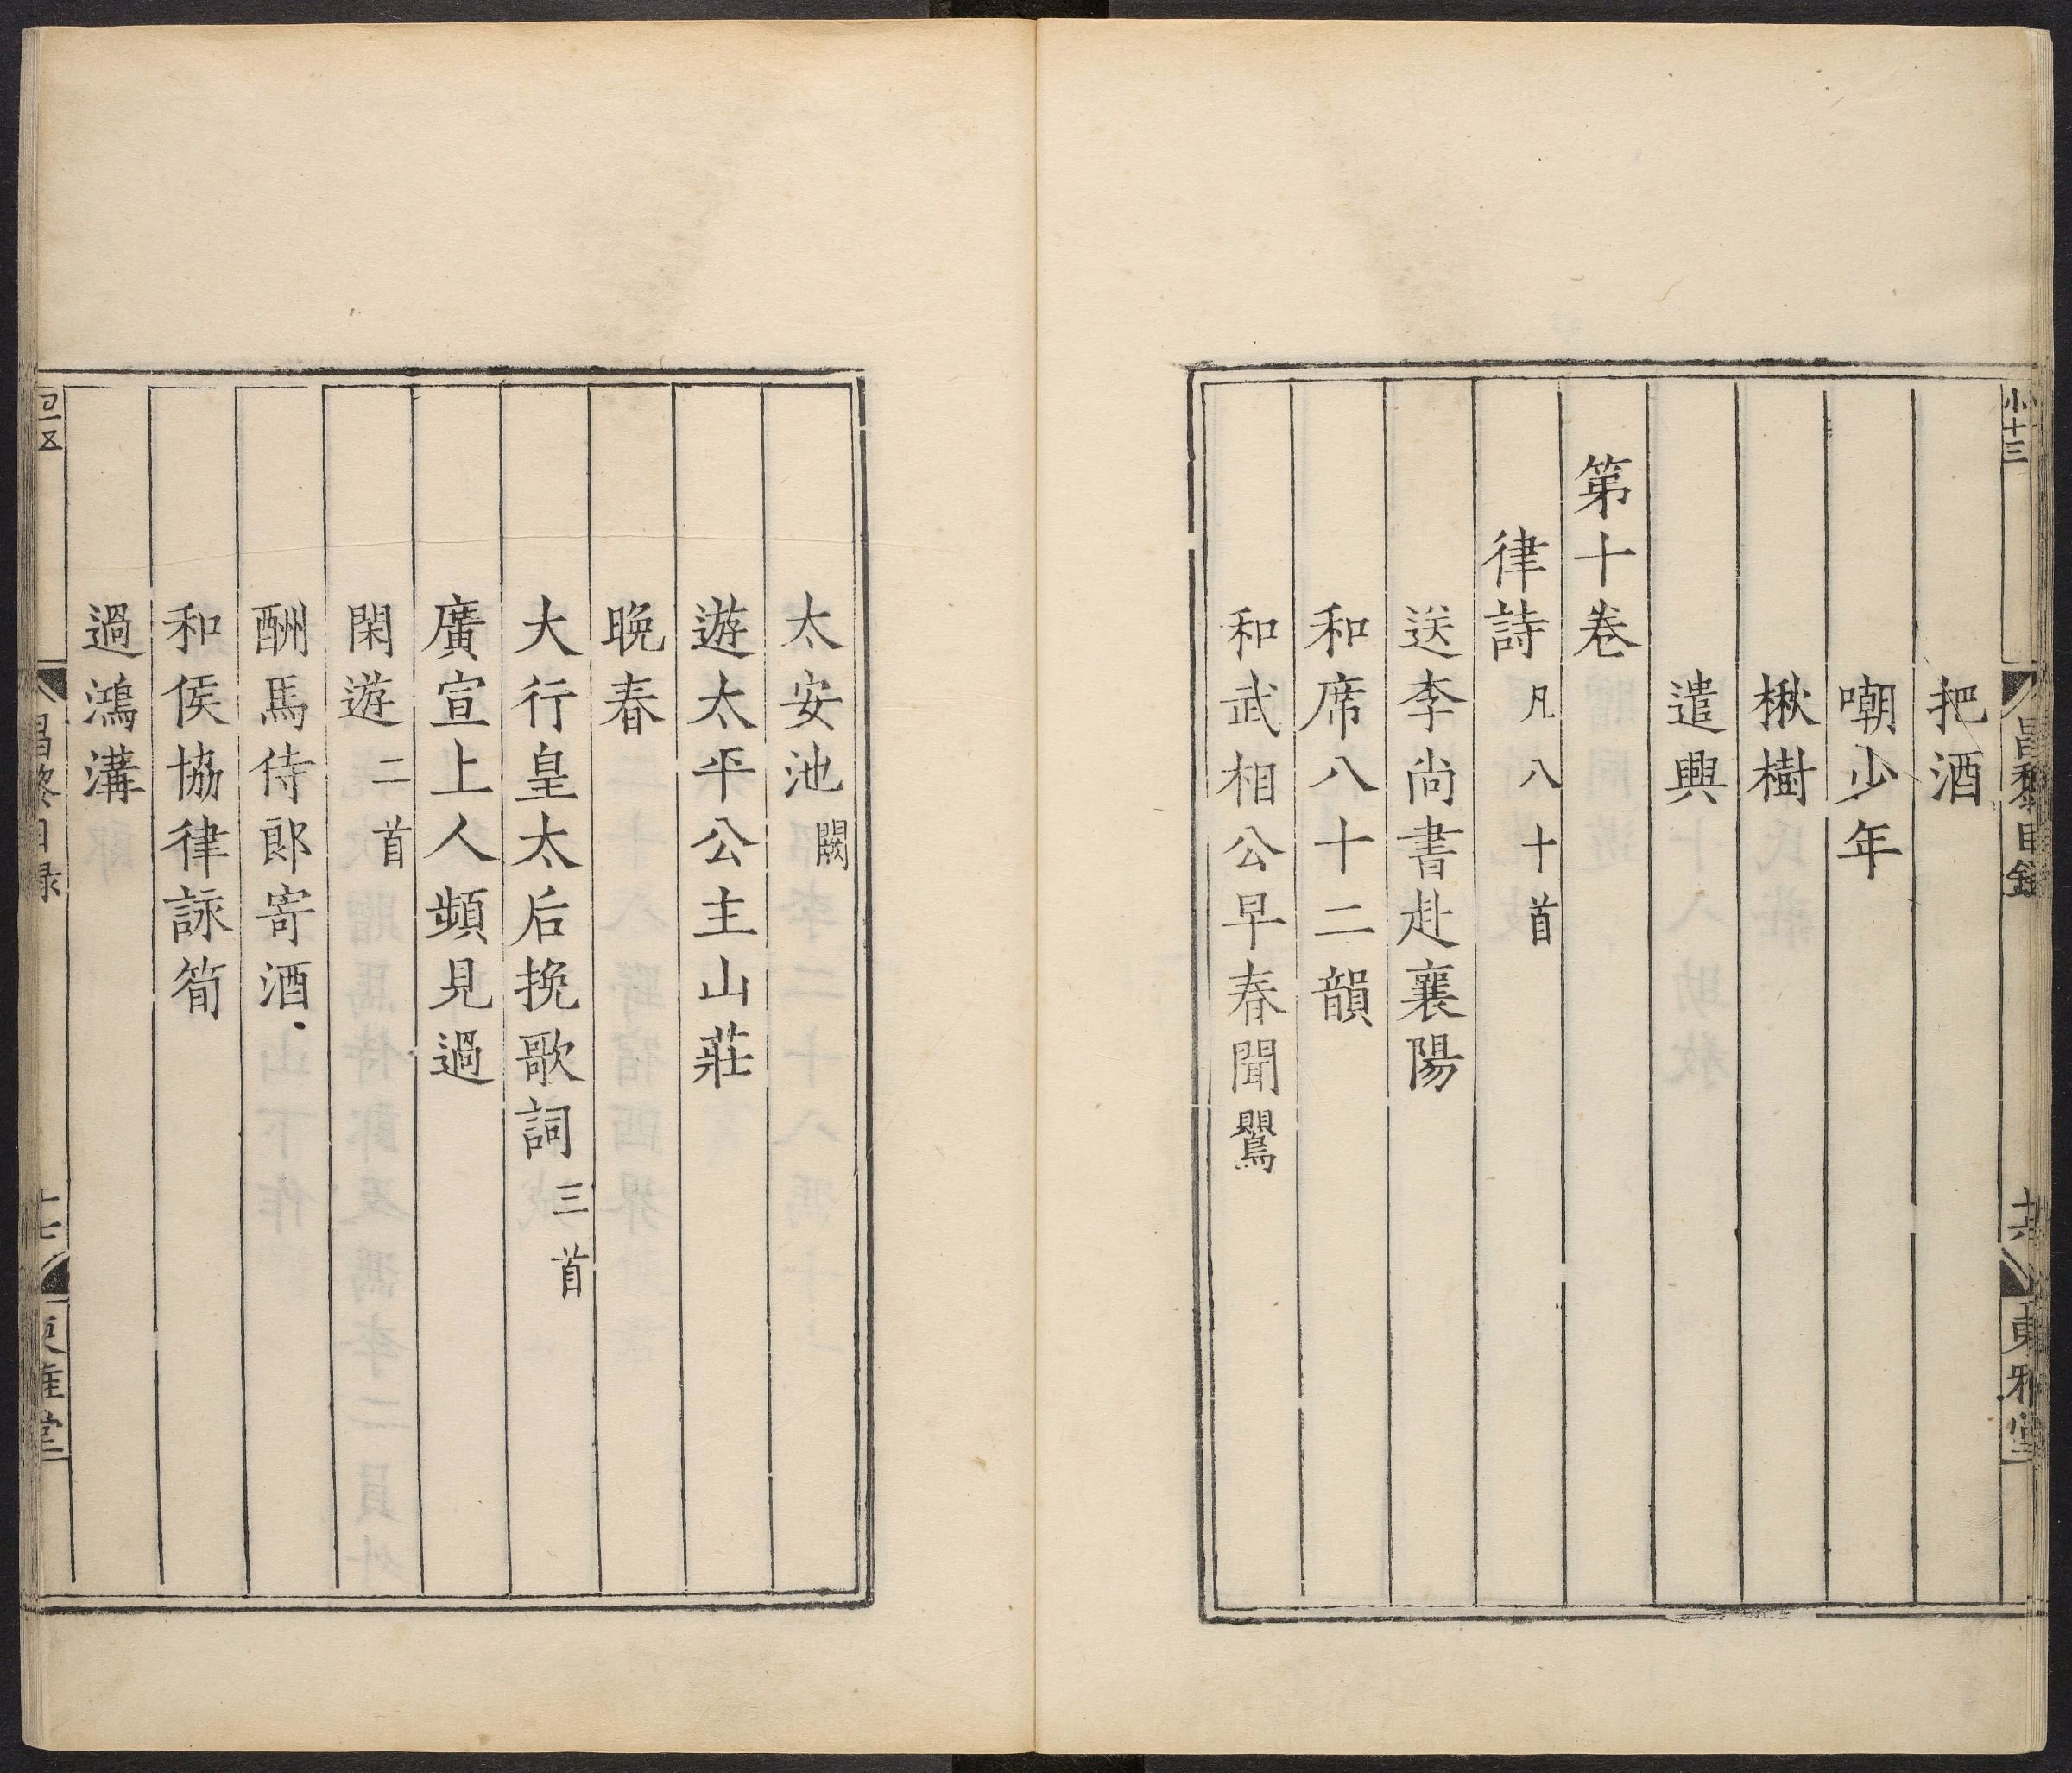 小十三
昌黎目錄
十六
東雅堂
把酒
嘲少年
楸樹
遣興
第十卷
律詩凡八十首
送李尚書赴襄陽
和席八十二韻
和武相公早春聞鸎
太安池闕
遊太平公主山莊
晚春
大行皇太后挽歌詞三首
廣宣上人頻見過
閑遊二首
酬馬侍郎寄酒
和侯協律詠筍
過鴻溝
昌黎目録
十七
東雅堂